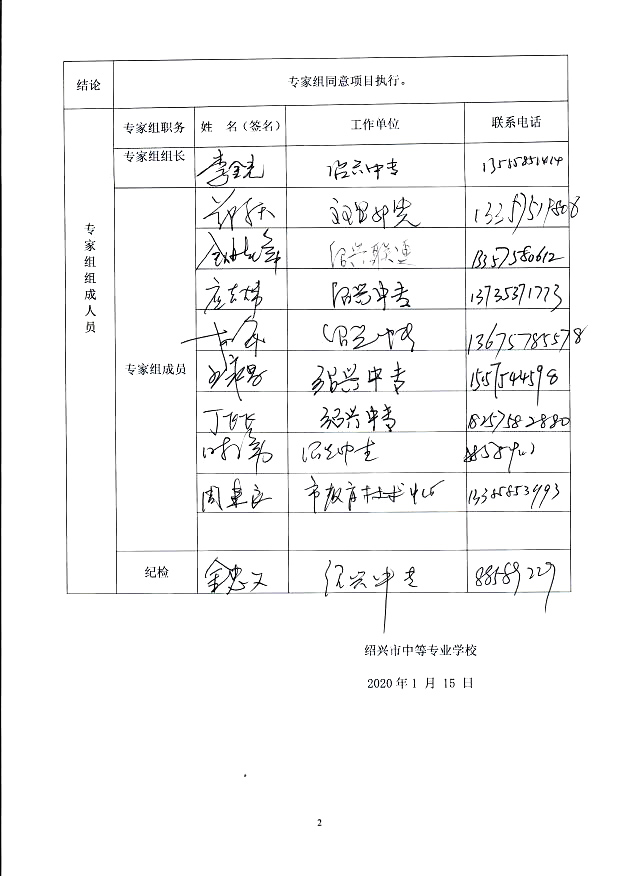 结论 专家组同意项目执行。
专家组组成人员
专家组职务 姓 名（签名） 工作单位 联系电话
专家组组长 李金亮 绍兴中专
专家组成员
绍兴联通 13357580612
绍兴中专 13735371773
绍兴中专 13675785578
绍兴中专 15157544598
丁飞飞 绍兴中专 18257582880
绍兴中专
周建良 市教育技术中心 13385853993
纪检 金忠文 绍兴中专 88589229
绍兴市中等专业学校
2020年1 月 15 日
2